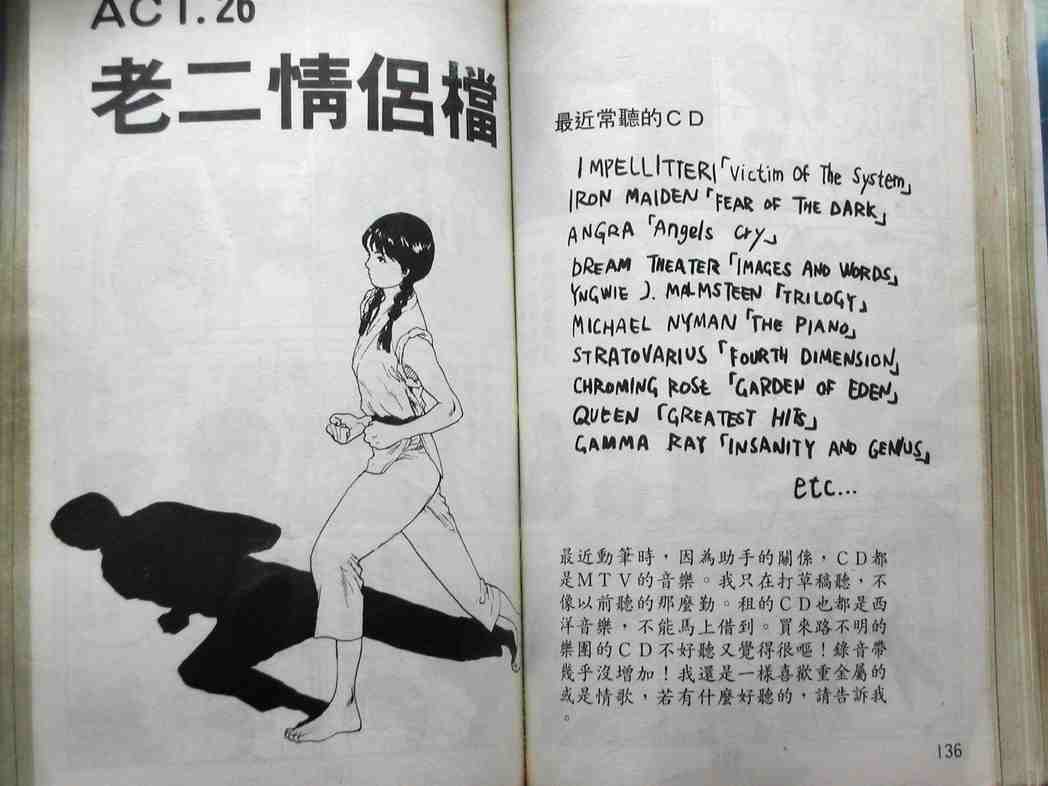 ACT. 26
老二情侶檔
最近常聽的CD
IMPELLITTERI「Victim Of The System」
IRON MAIDEN「FEAR OF THE DARK」
ANGRA「Angels Cry」
DREAM THEATER「IMAGES AND WORDS」
YNGWIE J. MALMSTEEN「TRILOGY」
MICHAEL NYMAN「THE PIANO」
STRATOVARIUS「FOURTH DIMENSION」
CHROMING ROSE「GARDEN OF EDEN」
QUEEN「GREATEST HITS」
GAMMA RAY「INSANITY AND GENIUS」
etc...
最近動筆時，因為助手的關係，CD都
是MTV的音樂。我只在打草稿聽，不
像以前聽的那麼勤。租的CD也都是西
洋音樂，不能馬上借到。買來路不明的
樂團的CD不好聽又覺得很嘔！錄音帶
幾乎沒增加！我還是一樣喜歡重金屬的
或是情歌，若有什麼好聽的，請告訴我
。
136